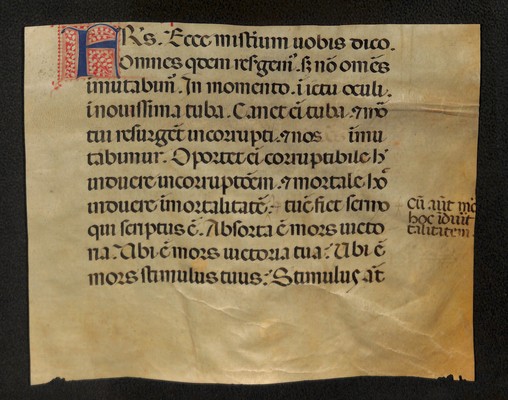 FRs. Ecce misterium uobis dico.
Omnes qdem resgem. s; nō om̄s
īmutabim̄. In momento. ī ictu oculi.
ī nouissima tuba. Canet eī tuba. ⁊ mō
tui resurgēt incorrupti. ⁊ nos īmu
tabimur. Oportet eī corruptibile h̄
induere incorruptōem. ⁊ mortale hō
induere īmortalitatē. tūc fiet sermo
qui scriptus ē. Absorta ē mors uicto
ria. Ubi ē mors uictoria tua. Ubi ē
mors stimulus tuus. Stimulus at̄
cū aūt mō
hoc iduit
talitatem